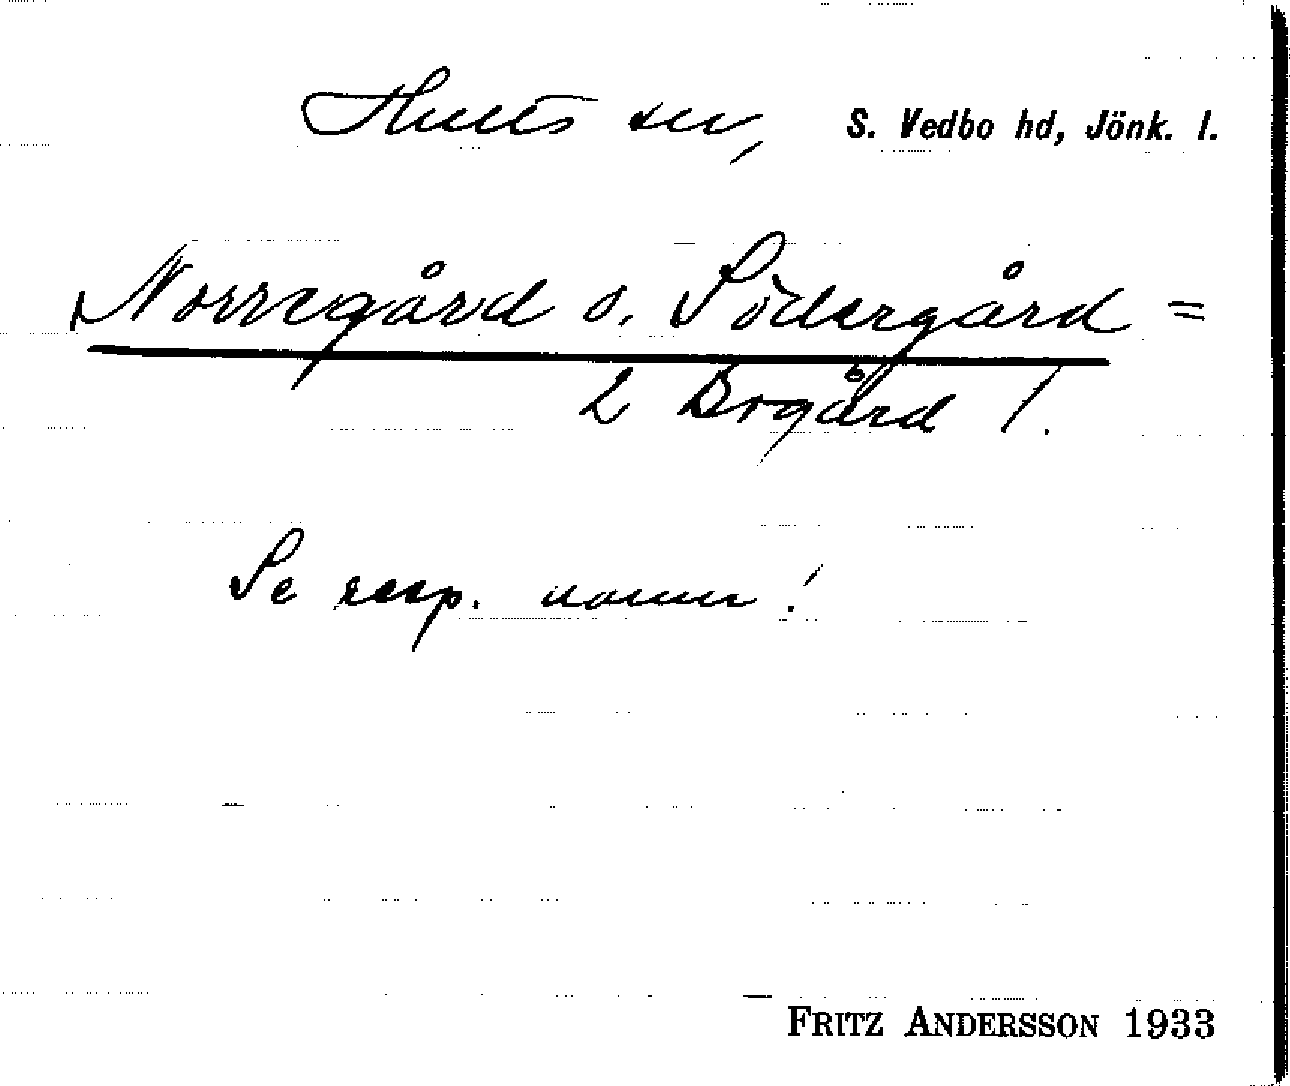 Hults sn, S. Vedbo hd, Jönk. l.
Norregård o. Södergård =
2 Brgård 1.
Se resp. namn!
FRITZ ANDERSSON 1933